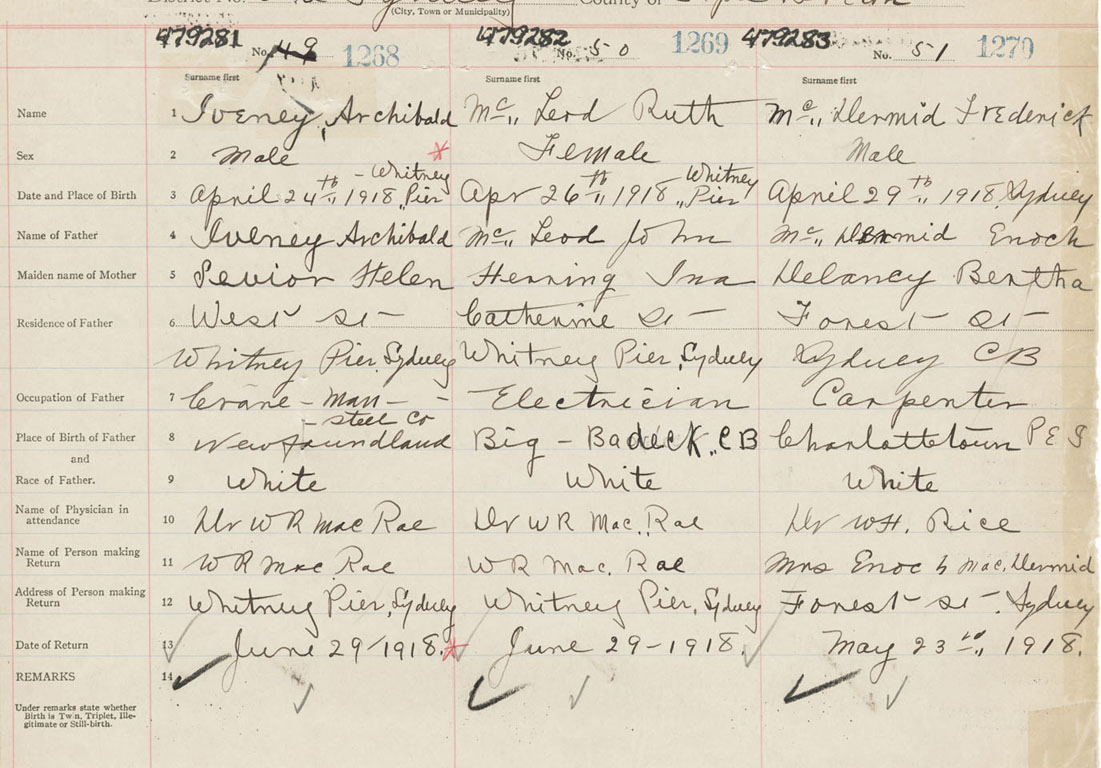 (City, Town or Municipality)
479281 No. 49 1268 479282 No. 50 1269 479283 No. 51 1270
Surname first Surname first Surname first
Name 1 Iveney, Archibald Mc,, Leod Ruth Mc,, Dermid Frederick
Sex 2 Male Female Male
Date and Place of Birth 3 April 24th,, 1918 - Whitney Pier Apr 26th,, 1918 Whitney Pier April 29th,, 1918, Sydney
Name of Father 4 Iveney Archibald Mc,, Leod John Mc,, Dermid Enoch
Maiden name of Mother 5 Sevior Helen Herring Ina Delaney Bertha
Residence of Father 6 West St- Catherine St- Forest St-
Whitney Pier, Sydney Whitney Pier, Sydney Sydney CB
Occupation of Father 7 Crane-man- - Electrician Carpenter
- Steel Co
Place of Birth of Father 8 Newfoundland Big - Badeck,, CB Charlottetown P E I
and
Race of Father. 9 White White White
Name of Physician in
attendance 10 Dr W R Mac Rae Dr W R Mac,. Rae Dr W H. Rice
Name of Person making
Return 11 W R Mac Rae W R Mac. Rae Mrs Enoch Mac, Dermid
Address of Person making
Return 12 Whitney Pier, Sydney Whitney Pier, Sydney Forest St-. Sydney
Date of Return 13 June 29-1918. June 29-1918. May 23rd,, 1918.
REMARKS 14
Under remarks state whether
Birth is Twin, Triplet, Ille-
gitimate or Still-birth.